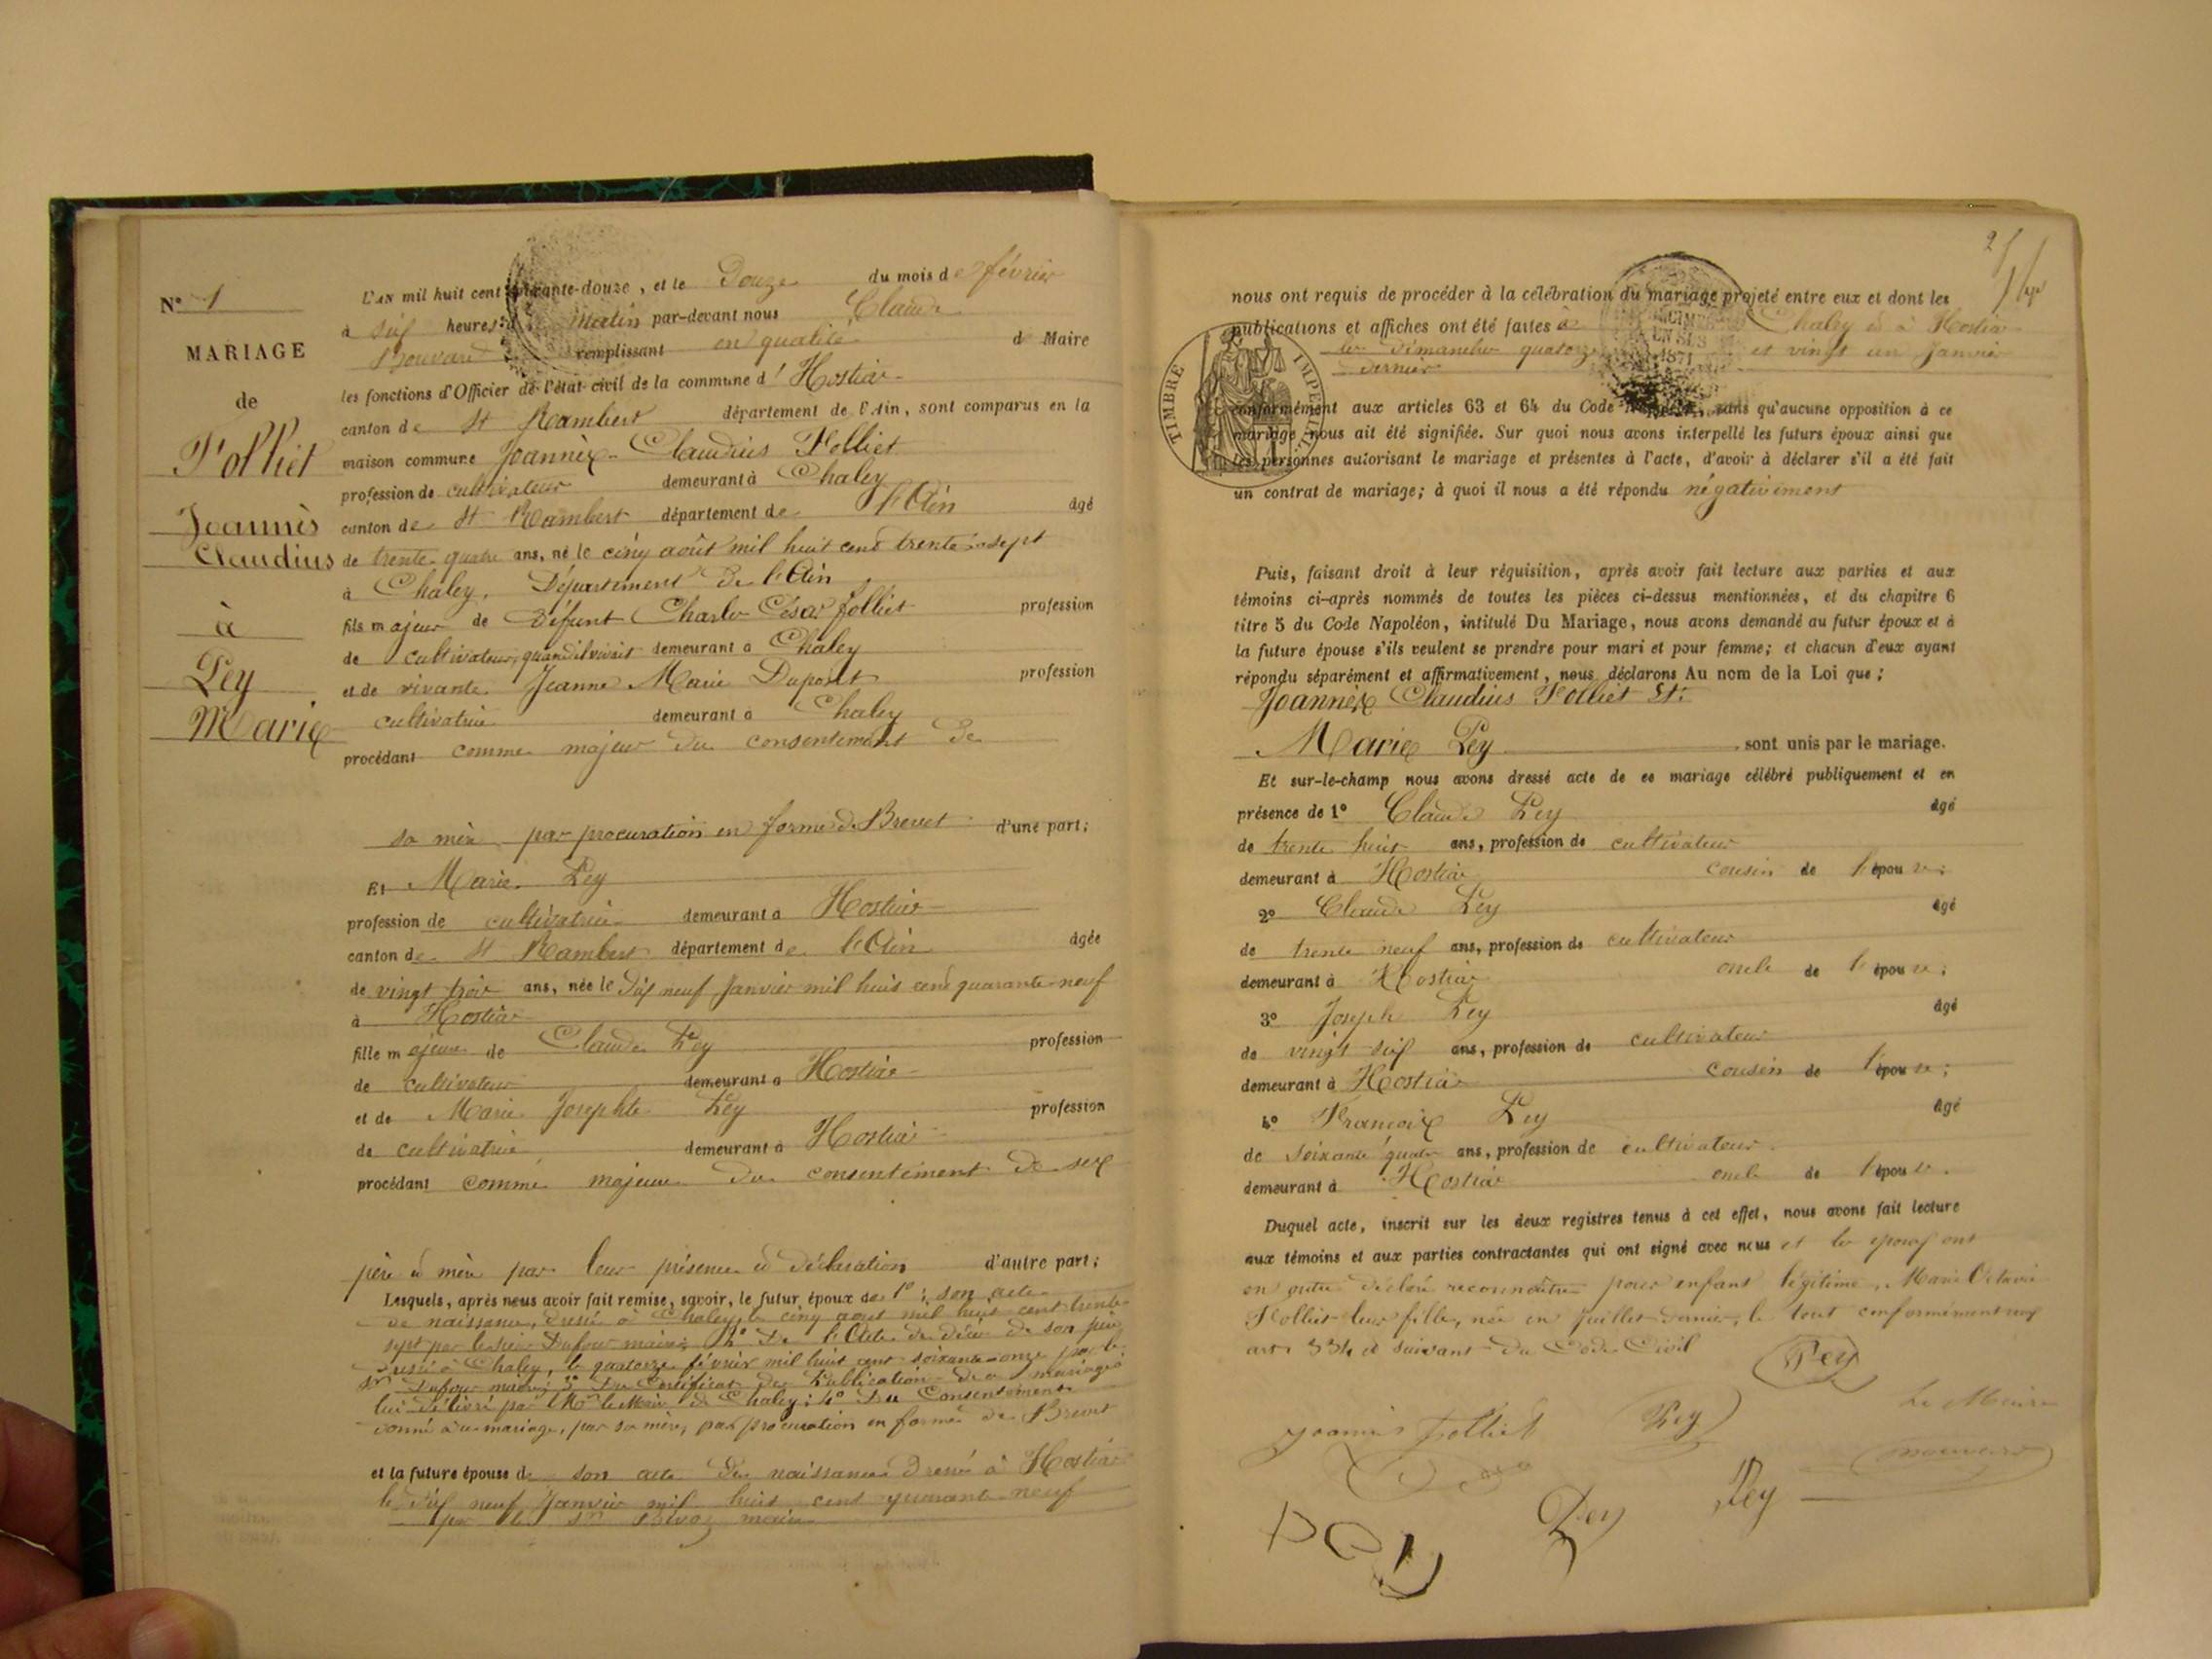 N° 1
MARIAGE
de
Folliet
Joannès
Claudius
à
Pey
Marie
L'AN mil huit cent soixante-douze, et le Douze du mois de février
à dix heures du Matin par-devant nous Claude
Bouvard remplissant en qualité de Maire
les fonctions d'Officier de l'état civil de la commune d'Hostiaz
canton de St Rambert département de l'Ain, sont comparus en la
maison commune Joannès Claudius Folliet
profession de cultivateur demeurant à Chaley
canton de St Rambert département de l'Ain âgé
de trente quatre ans, né le cinq août mil huit cent trente sept
à Chaley, Département de l'Ain
fils majeur de Défunt Charles César Folliet profession
de cultivateur, quand il vivait demeurant à Chaley
et de vivante Jeanne Marie Dupont profession
cultivatrice demeurant à Chaley
procédant comme majeur du consentement de
sa mère par procuration en forme de Brevet d'une part;
Et Marie Pey
profession de cultivatrice demeurant à Hostiaz
canton de St Rambert département de l'Ain âgée
de vingt trois ans, née le dix neuf Janvier mil huit cent quarante neuf
à Hostiaz
fille majeure de Claude Pey profession
de cultivateur demeurant à Hostiaz
et de Marie Josephte Pey profession
de cultivatrice demeurant à Hostiaz
procédant comme majeure du consentement de ses
père et mère par leur présence et déclaration d'autre part;
Lesquels, après nous avoir fait remise, savoir, le futur époux de 1° : son acte
de naissance, dressé à Chaley, le cinq août mil huit cent trente
sept par le sieur Dufour maire; 2° De l'Acte de décès de son père
dressé à Chaley, le quatorze février mil huit cent soixante-onze par le
sr Dufour maire; 3° Du Certificat de Publication de mariage
lui délivré par Mr le Maire de Chaley; 4° Du Consentement
donné à ce mariage, par sa mère, par procuration en forme de Brevet
et la future épouse de son acte de naissance dressé à Hostiaz
le dix neuf Janvier mil huit cent quarante neuf
par le sr maire
2
nous ont requis de procéder à la célébration du mariage projeté entre eux et dont les
publications et affiches ont été faites à Chaley et à Hostiaz
les dimanches quatorze et vingt un Janvier
dernier
TIMBRE IMPERIAL
EN SUS
1871
conformément aux articles 63 et 64 du Code Napoléon, sans qu'aucune opposition à ce
mariage nous ait été signifiée. Sur quoi nous avons interpellé les futurs époux ainsi que
les personnes autorisant le mariage et présentes à l'acte, d'avoir à déclarer s'il a été fait
un contrat de mariage; à quoi il nous a été répondu négativement
Puis, faisant droit à leur réquisition, après avoir fait lecture aux parties et aux
témoins ci-après nommés de toutes les pièces ci-dessus mentionnées, et du chapitre 6
titre 5 du Code Napoléon, intitulé Du Mariage, nous avons demandé au futur époux et à
la future épouse s'ils veulent se prendre pour mari et pour femme; et chacun d'eux ayant
répondu séparément et affirmativement, nous déclarons Au nom de la Loi que;
Joannès Claudius Folliet Et
Marie Pey sont unis par le mariage.
Et sur-le-champ nous avons dressé acte de ce mariage célébré publiquement et en
présence de 1° Claude Pey âgé
de trente huit ans, profession de cultivateur
demeurant à Hostiaz cousin de l'épouse;
2° Claude Pey âgé
de trente neuf ans, profession de cultivateur
demeurant à Hostiaz oncle de l'épouse;
3° Joseph Pey âgé
de vingt six ans, profession de cultivateur
demeurant à Hostiaz cousin de l'épouse;
4° François Pey âgé
de soixante quatre ans, profession de cultivateur
demeurant à Hostiaz oncle de l'épouse.
Duquel acte, inscrit sur les deux registres tenus à cet effet, nous avons fait lecture
aux témoins et aux parties contractantes qui ont signé avec nous et les époux ont
en outre déclaré reconnaître pour enfant légitime, Marie Octavie
Folliet leur fille, née en Juillet dernier, le tout conformément aux
arts 334 et suivant du Code Civil
Pey
Joannès folliet
Pey
Le Maire
Bouvard
Pey
Pey
Pey